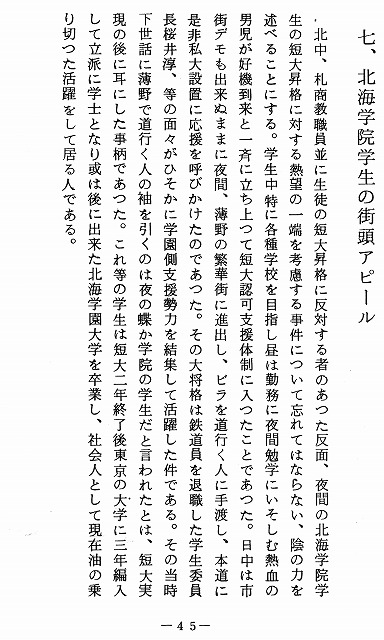 七、北海学院学生の街頭アピール
北中、札商教職員並に生徒の短大昇格に反対する者のあつた反面、夜間の北海学院学
生の短大昇格に対する熱望の一端を考慮する事件について忘れてはならない、陰の力を
述べることにする。学生中特に各種学校を目指し昼は勤務に夜間勉学にいそしむ熱血の
男児が好機到来と一斉に立ち上つて短大認可支援体制に入つたことであつた。日中は市
街デモも出来ぬままに夜間、薄野の繁華街に進出し、ビラを道行く人に手渡し、本道に
是非私大設置に応援を呼びかけたのであつた。その大将格は鉄道員を退職した学生委員
長桜井淳、等の面々がひそかに学園側支援勢力を結集して活躍した件である。その当時
下世話に薄野で道行く人の袖を引くのは夜の蝶か学院の学生だと言われたとは、短大実
現の後に耳にした事柄であつた。これ等の学生は短大二年終了後東京の大学に三年編入
して立派に学士となり或は後に出来た北海学園大学を卒業し、社会人として現在油の乗
り切つた活躍をして居る人である。
―45―